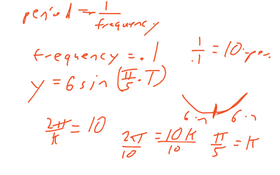 period = 1/frequency
frequency = .1
1/.1 = 10
y = 6 sin (π/5 · T)
6 in 6 in
2π/k = 10
2π/10 = 10k/10
π/5 = k